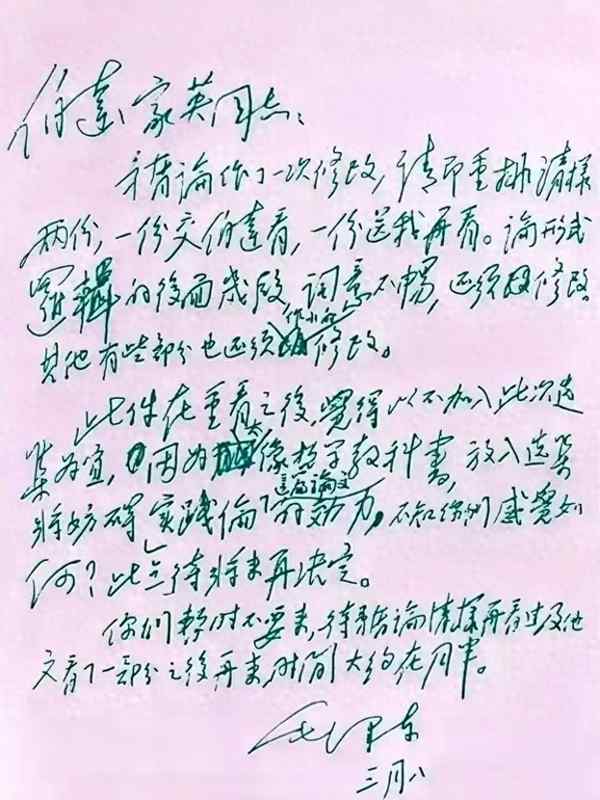 伯達、家英同志：
矛盾論作了一次修改，請即重排清樣
兩份，一份交伯達看，一份送我再看。論形式
邏輯的後面幾段，詞意不暢，还須修改。
其他有些部分也还須作小的修改。
此件在重看之後，覺得以不加入此次选
集为宜，因为太像哲学教科書，放入选集
将妨碍「实践論」這篇論文的効力，不知你們感覺如
何？此点待将来再决定。
你們暫时不要来，待矛盾論清樣再看过及他
文看了一部分之後再来，时间大約在月半。
毛澤东
三月八